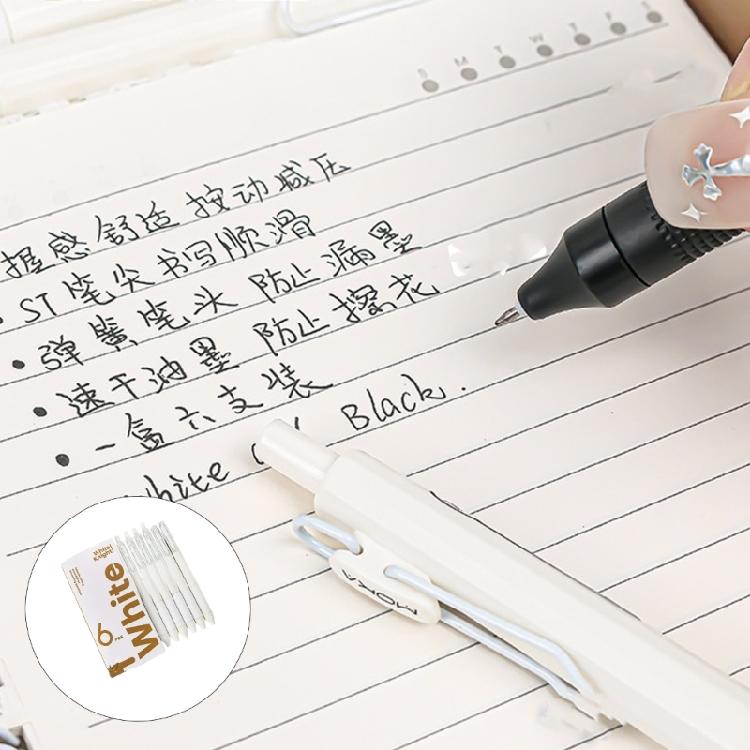 S M T W T F S
握感舒适 按动减压
• ST笔尖 书写顺滑
• 弹簧笔头 防止漏墨
• 速干油墨 防止擦花
• 一盒六支装
Black.
MOKA
White Knight
White
6